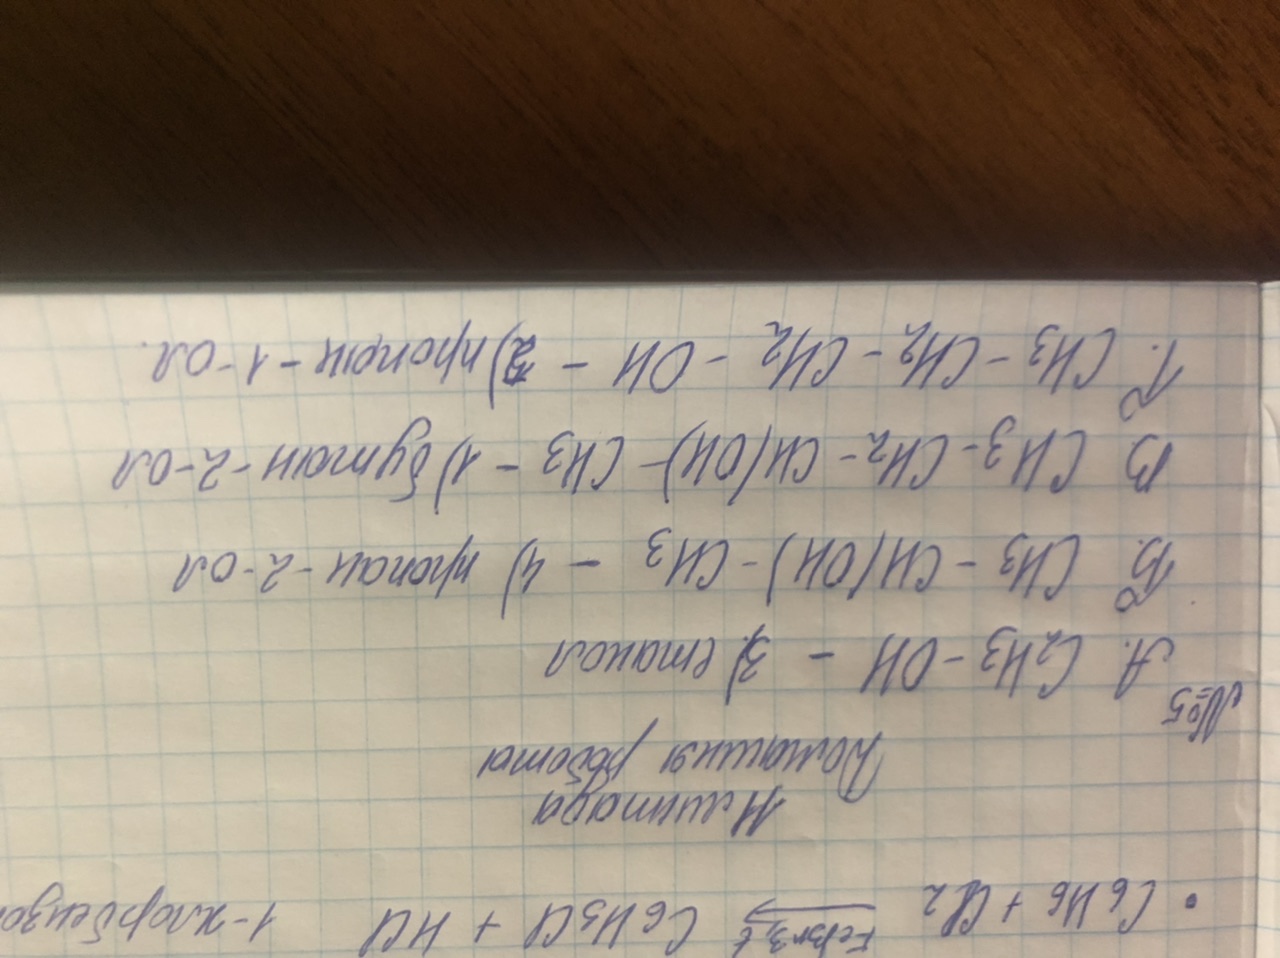 • C6H6 + Cl2 FeBr3, t → C6H5Cl + HCl 1-хлорбензо
Домашня робота
№5
А. C2H5 - OH - 3) етанол
Б. CH3 - CH(OH) - CH3 - 4) пропан-2-ол
В CH3 - CH2 - CH(OH) - CH3 - 1) бутан-2-ол
Г. CH3 - CH2 - CH2 - OH - 2) пропан-1-ол.